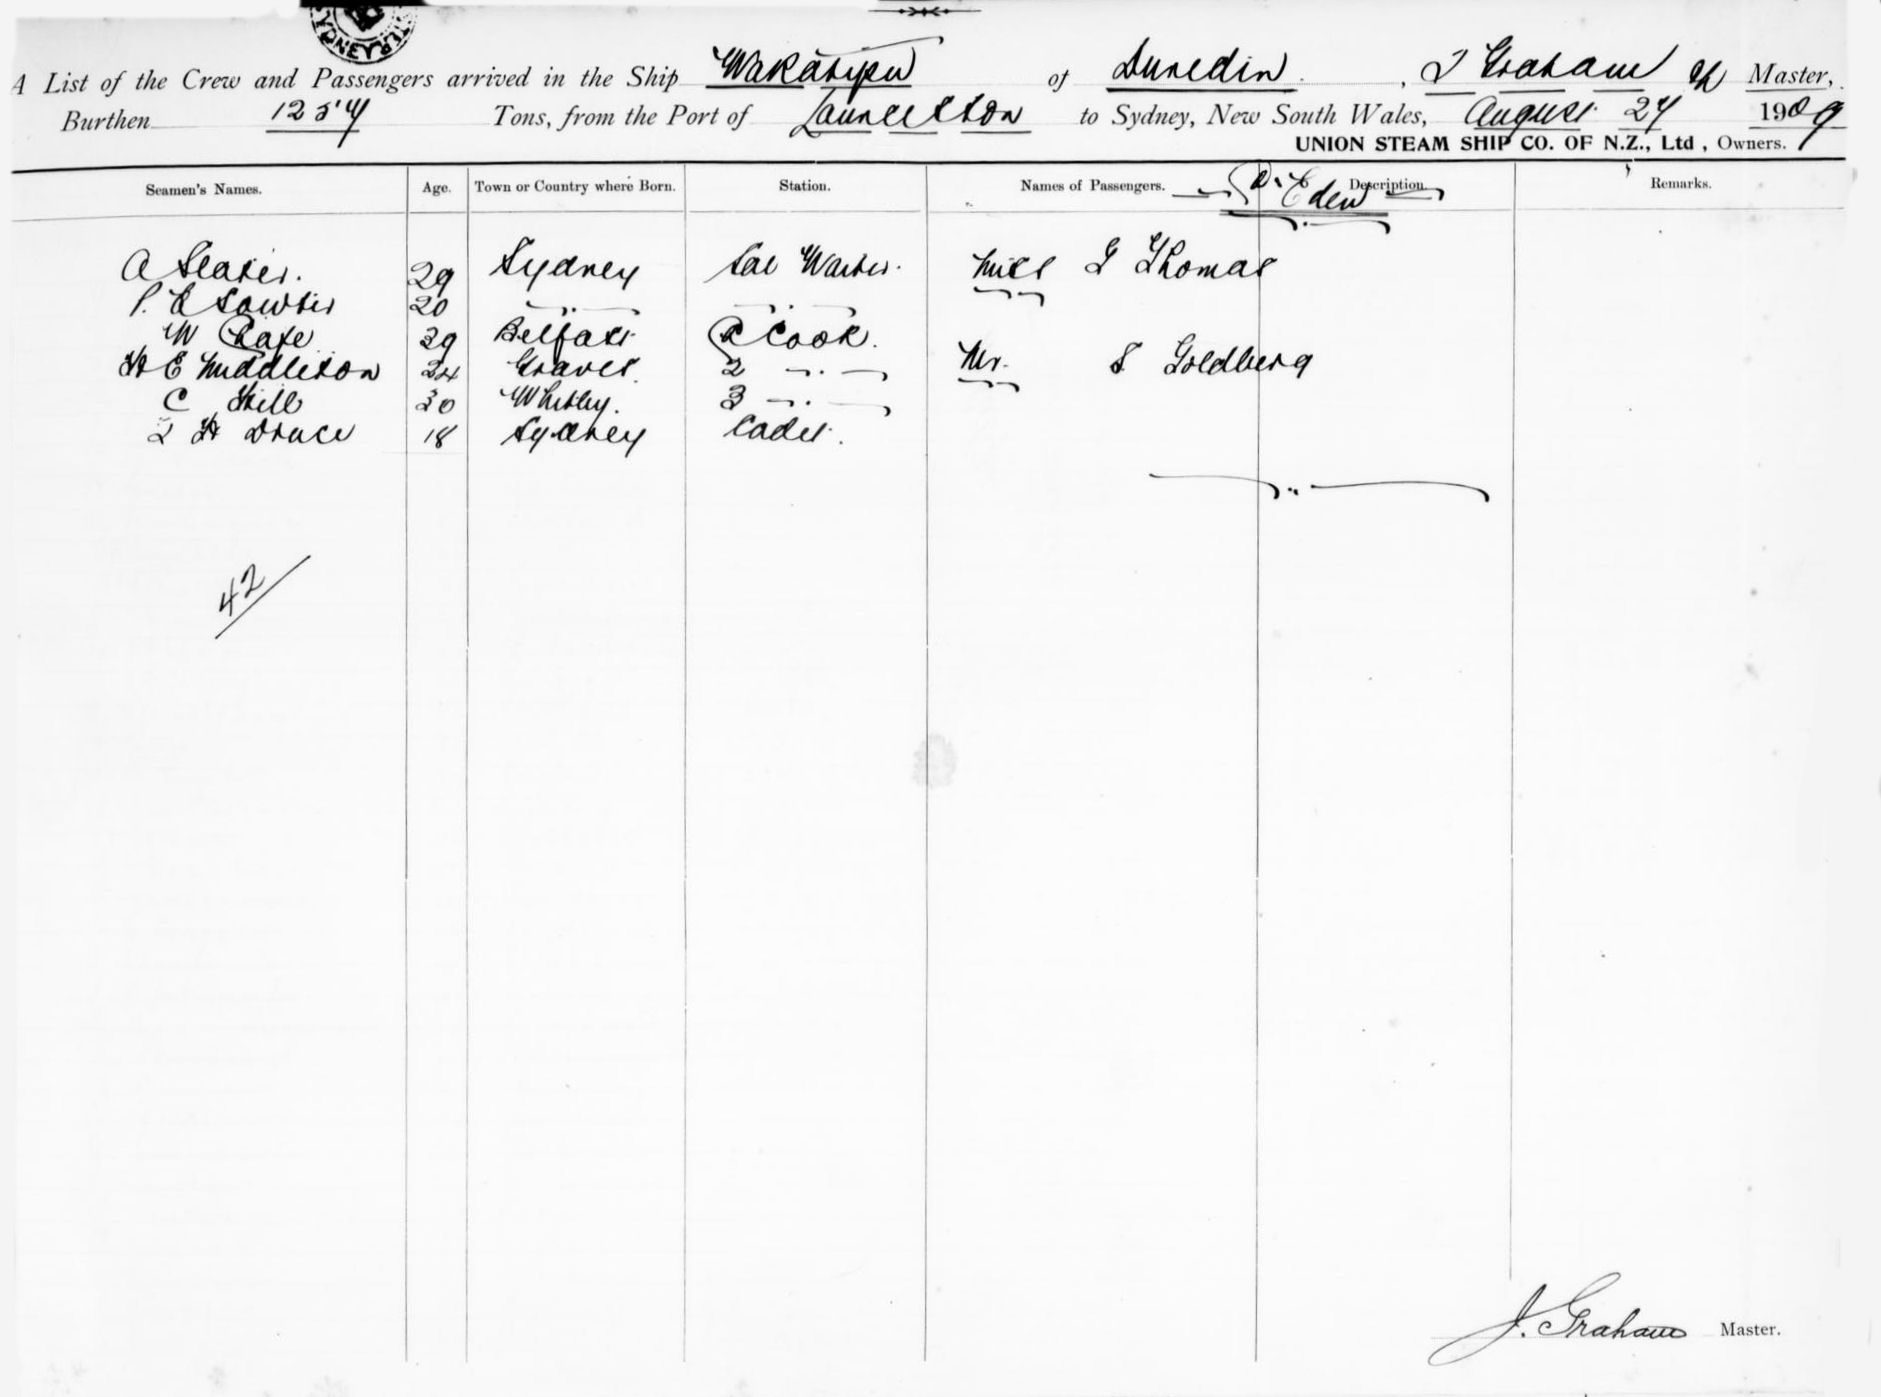 A List of the Crew and Passengers arrived in the Ship Wakatipu of Dunedin, J Graham Master,
Burthen 1257 Tons, from the Port of Launceston to Sydney, New South Wales, August 27 1909
UNION STEAM SHIP CO. OF N.Z., Ltd, Owners.
Seamen's Names. Age. Town or Country where Born. Station. Names of Passengers. Description. Remarks.
Eden
A Slater. 29 Sydney Sal Waiter. Miss G Thomas
P. E 20 —··— —··—
W 39 Belfast Cook.
H E Middleton 24 Graves. 2 —·— Mr. S Goldberg
C Hill 30 Whitby. 3 —·—
J H Druce 18 Sydney Cadet.
42
J. Graham Master.